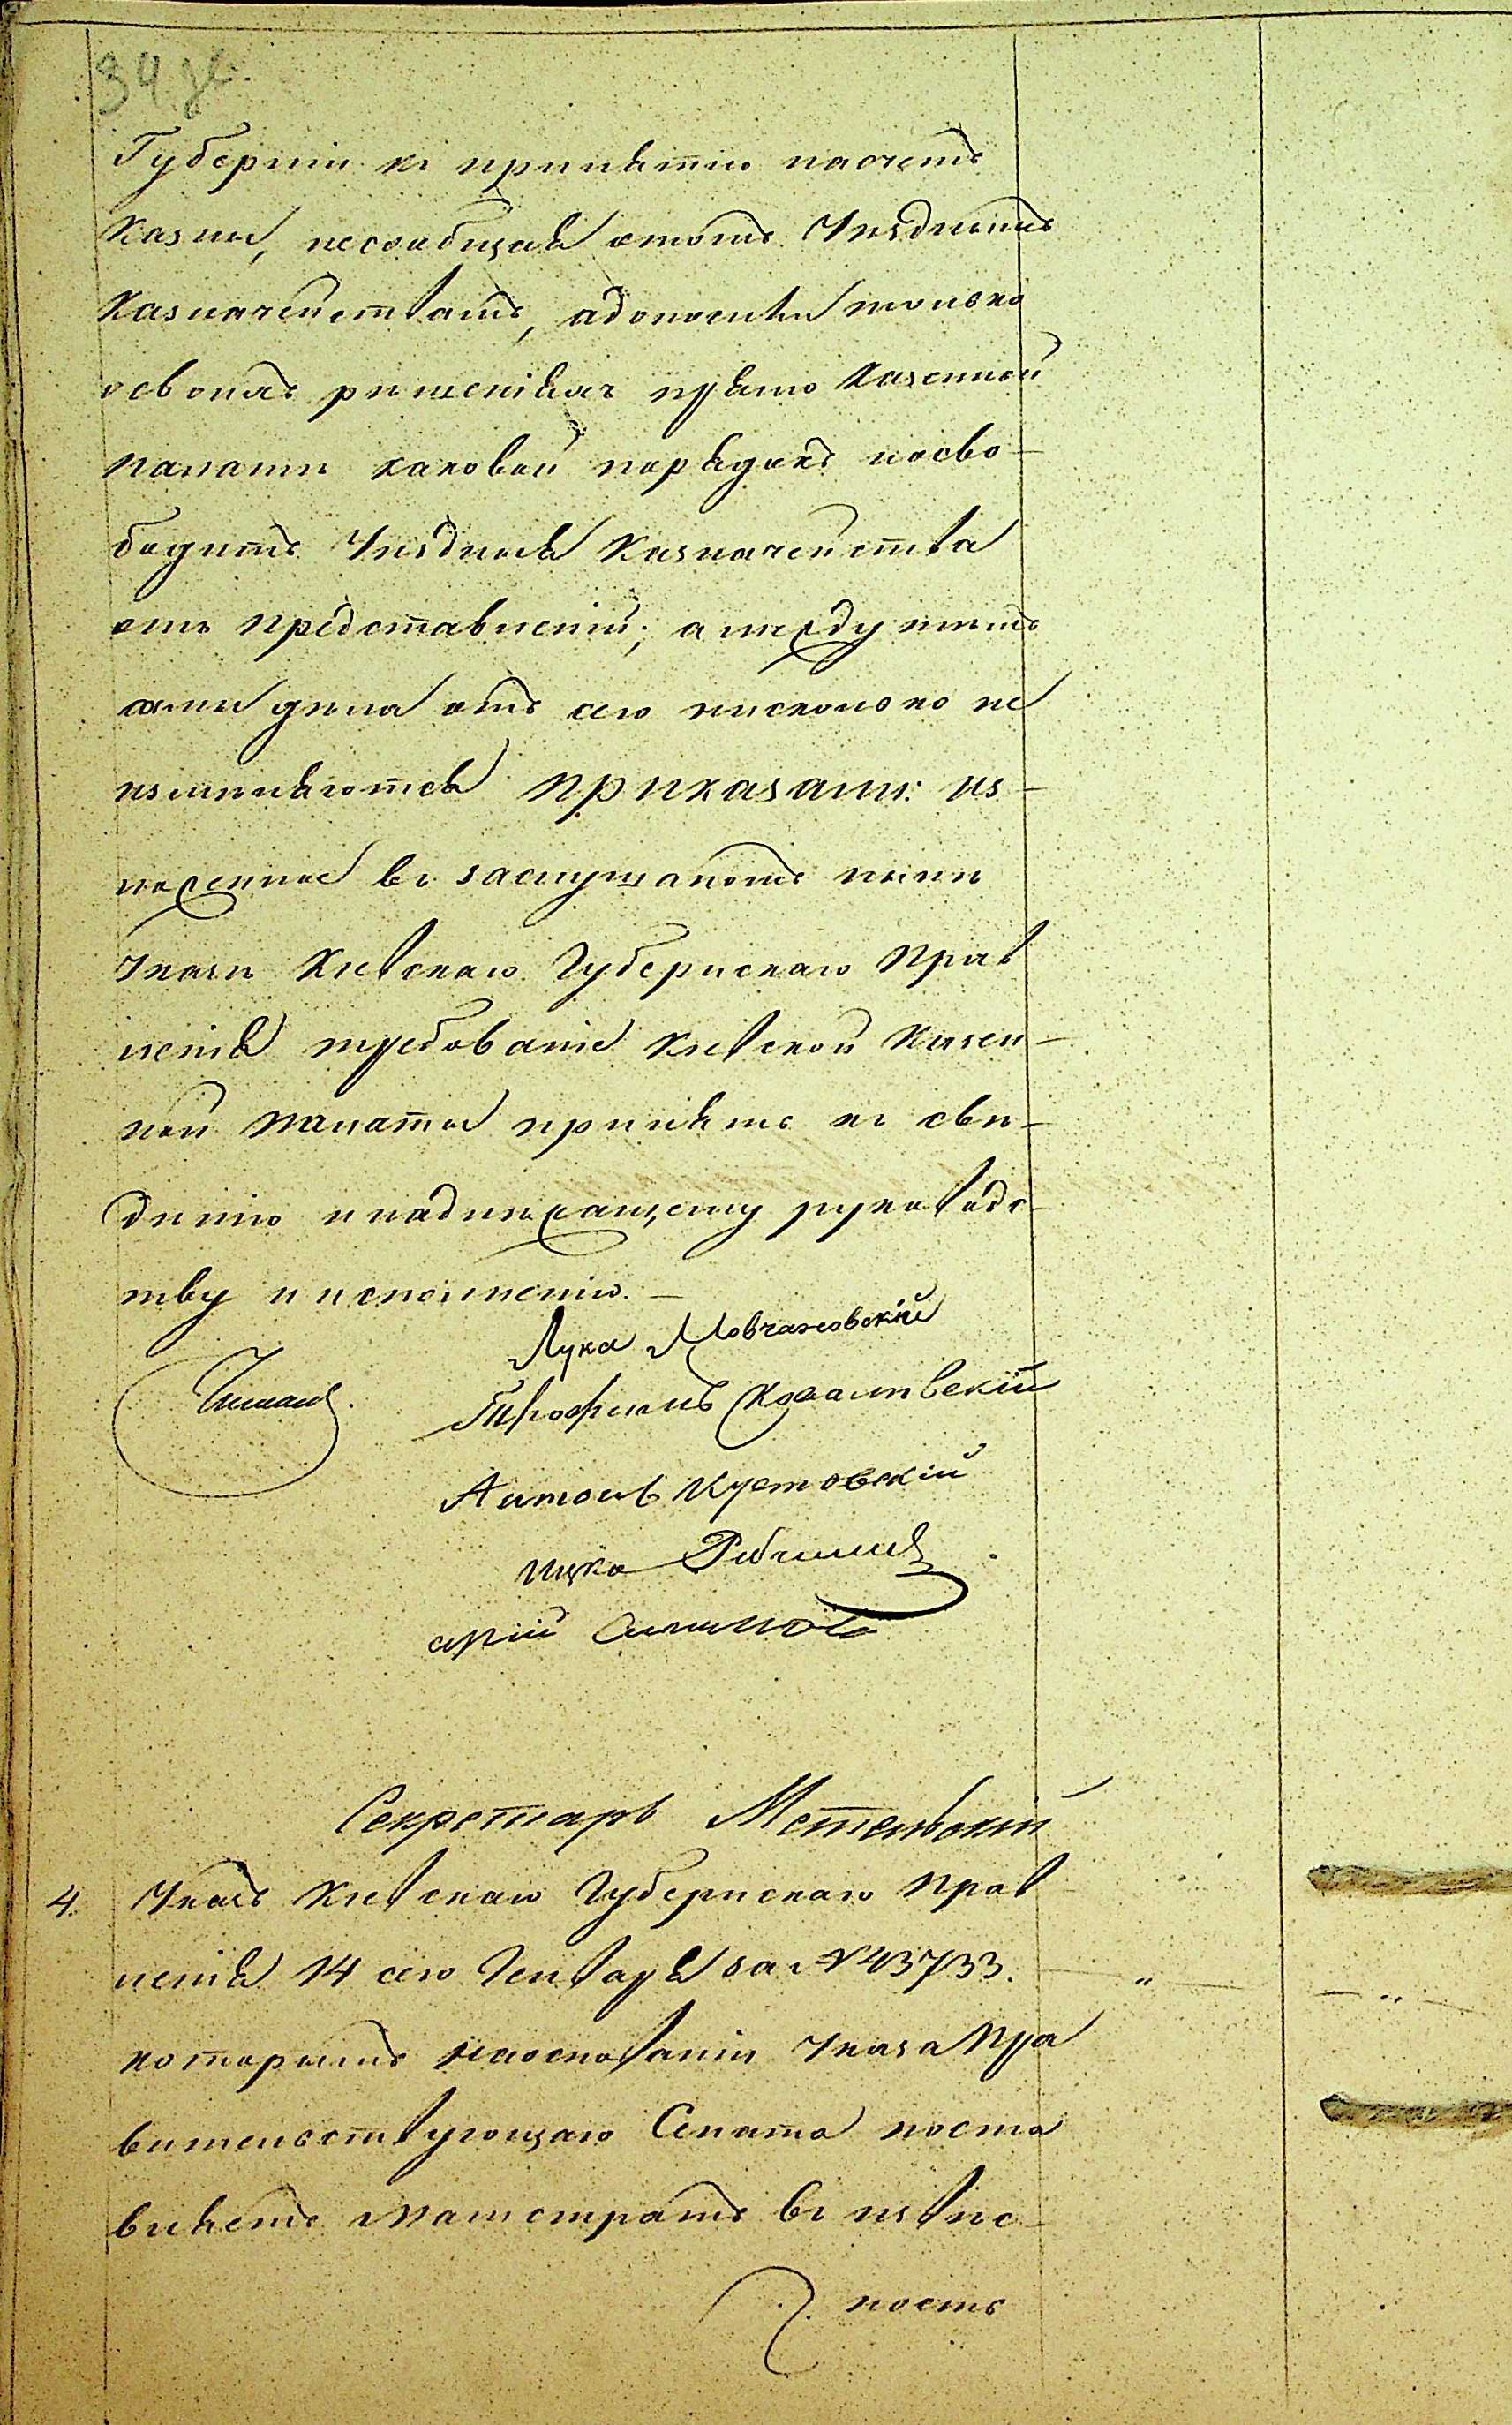 34 зв.
Губерніи къ принятію насчетъ
казны, несообщая отомъ Уѣзднымъ
Казначействамъ, адонося только
освоихъ рѣшеніяхъ прямо Казенной
палатѣ каковой порядокъ иосво-
бодитъ Уѣздныя Казначейства
отъ представленій; а между тѣмъ
самыя дѣла отъ сего нисколько не
измѣняются Приказали: из-
ложенное въ заслушаномъ нынѣ
Указѣ Кіевскаго Губернскаго Прав
ленія требованіе Кіевской Казен-
ной палаты принять къ свѣ-
дѣнію инадлежащему руководс-
тву и исполненію. —
Лука Мовчановскій
Антонъ Кустовскій
Ицко
Секретарь
4. Указъ Кіевскаго Губернскаго Прав
ленія 14 сего Генваря за № 43733.
которымъ наоснованіи Указа Пра
вительствующаго Сената поста
вляетъ Магистратъ въ извѣс-
ность